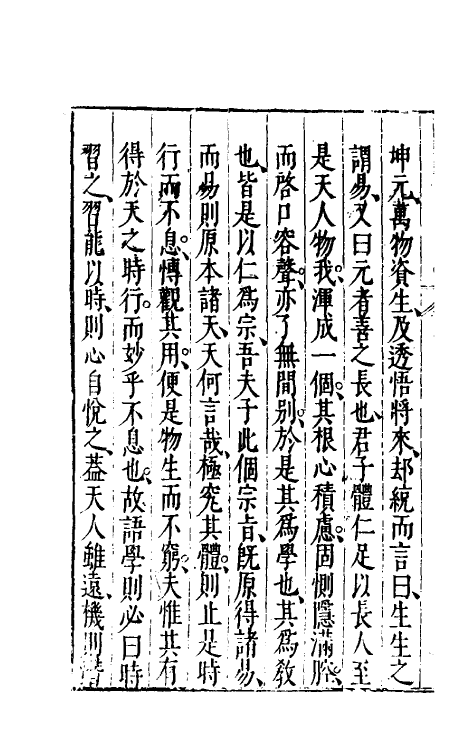 坤元、萬物資生、及透悟將來、却統而言曰、生生之
謂易、又曰元者善之長也、君子體仁足以長人、至
是天人物我、渾成一個、其根心積慮、固惻隱滿腔、
而啓口容聲、亦了無間別、於是其爲學也、其爲敎
也、皆是以仁爲宗、吾夫子此個宗旨、旣原得諸易、
而易則原本諸天、天何言哉、極究其體、則止是時
行而不息、慱觀其用、便是物生而不窮、夫惟其有
得於天之時行、而妙乎不息也、故語學則必曰時
習之、習能以時、則心自悅之、葢天人雖遠、機則潛